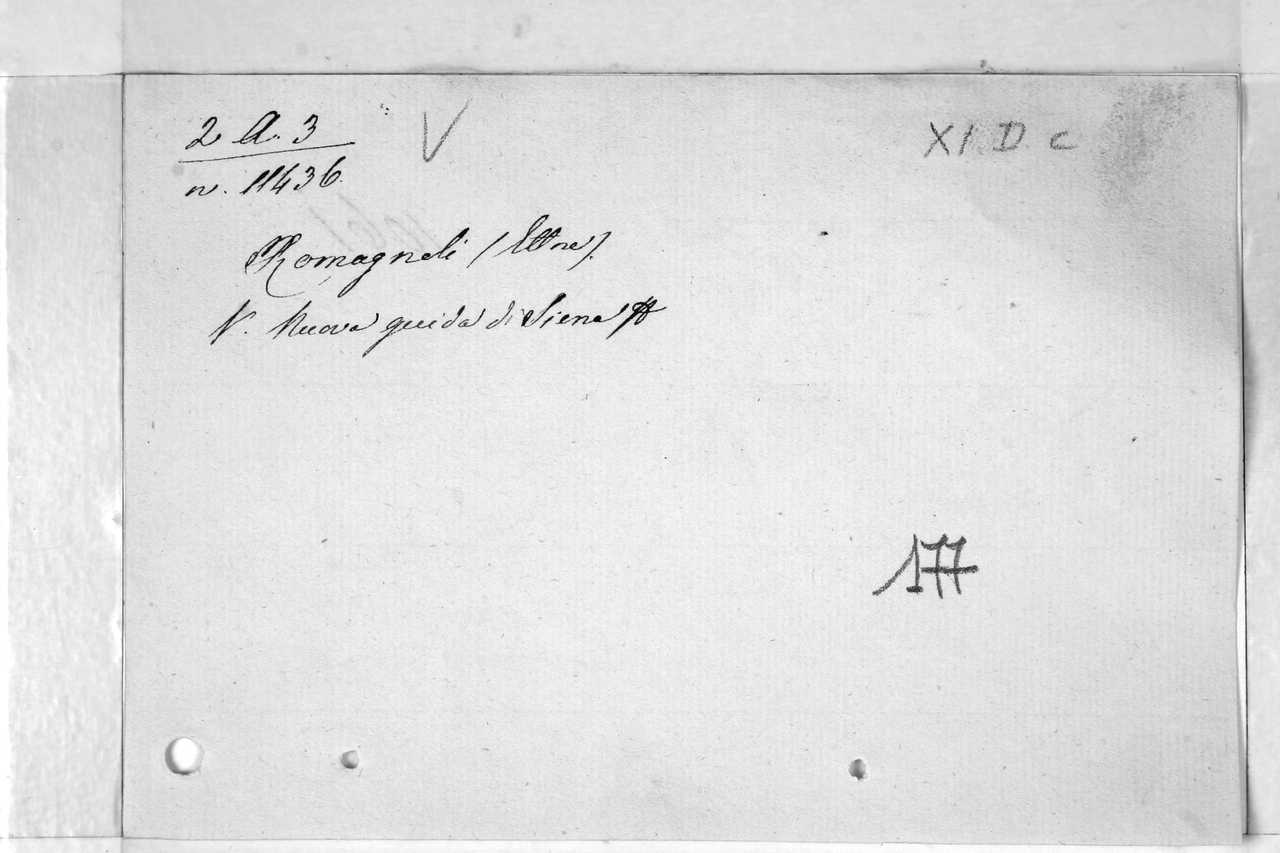 2 A. 3
V
XI D c
n. 11436.
Romagnoli (Ettore).
V. Nuova guida di Siena
177